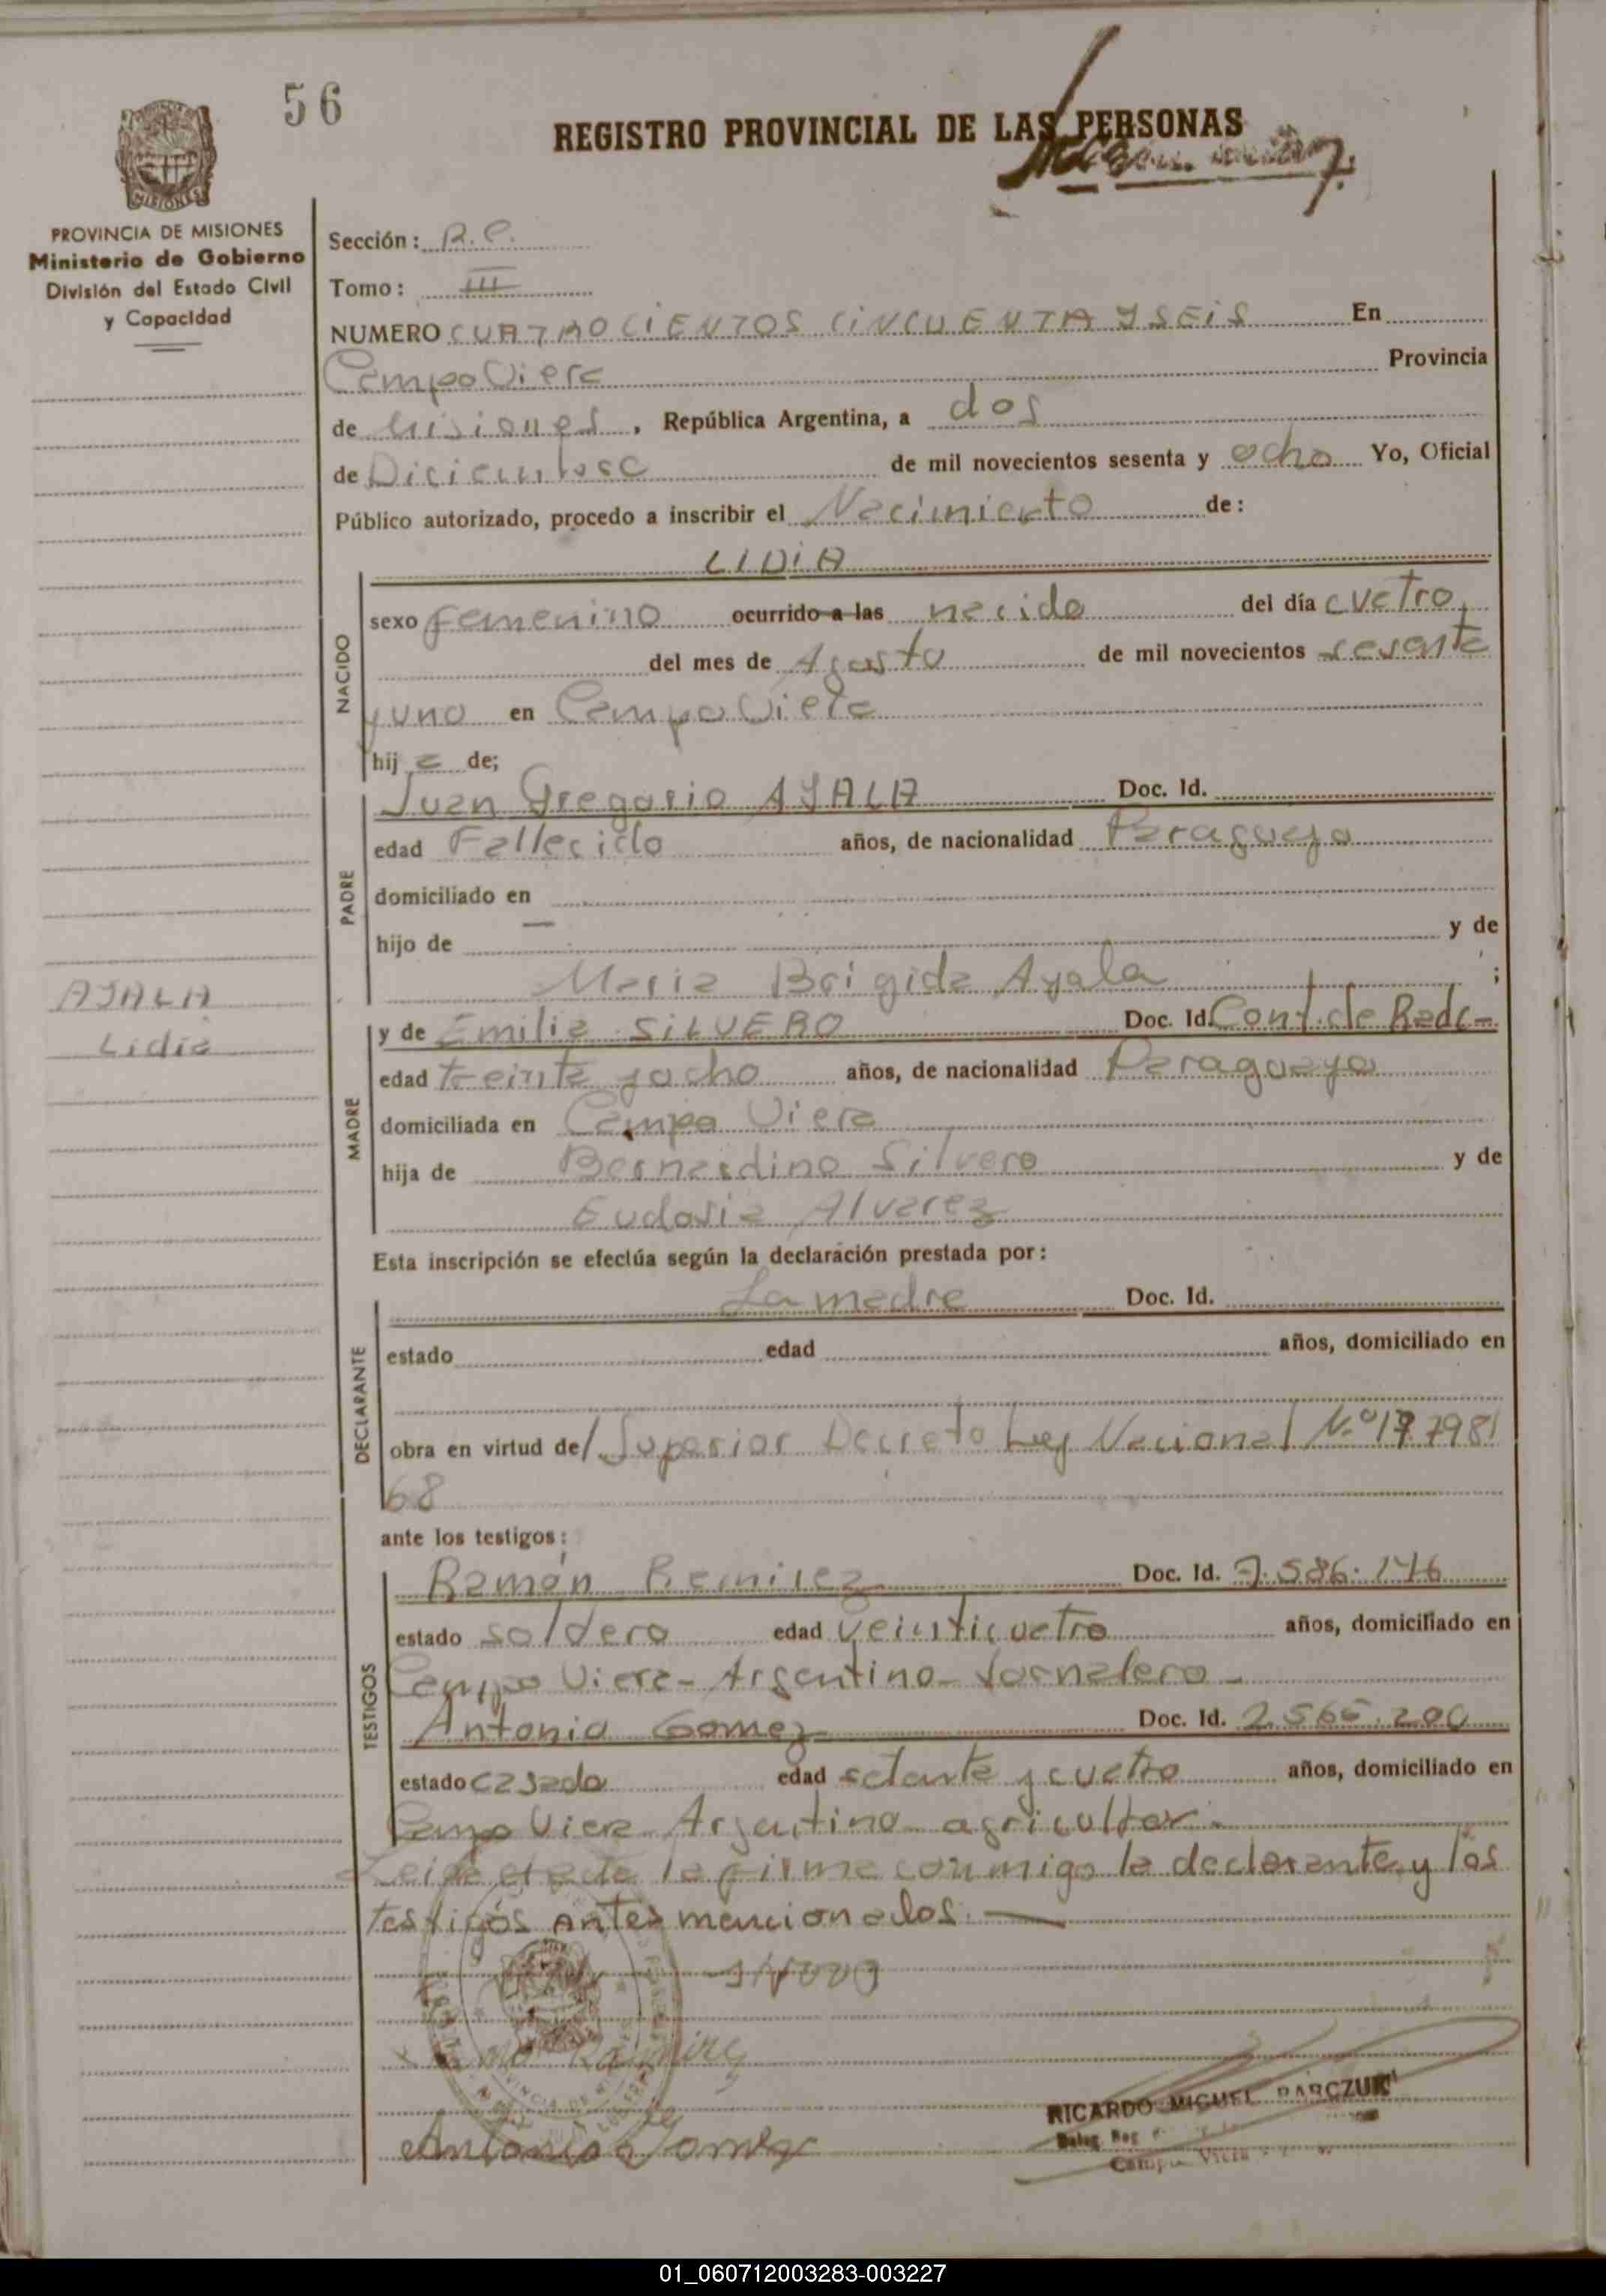 56
REGISTRO PROVINCIAL DE LAS PERSONAS
MISIONES
PROVINCIA DE MISIONES
Ministerio de Gobierno
División del Estado Civil
y Capacidad
Sección: R.C.
Tomo: III
NUMERO CUATROCIENTOS CINCUENTA Y SEIS En
Campo Viera Provincia
de Misiones, República Argentina, a dos
de Diciembre de mil novecientos sesenta y ocho Yo, Oficial
Público autorizado, procedo a inscribir el Nacimiento de:
LIDIA
NACIDO
sexo femenino ocurrido a las nacida del día cuatro
del mes de Agosto de mil novecientos sesenta
y uno en Campo Viera
hij a de;
PADRE
Juan Gregorio AYALA Doc. Id.
edad Fallecido años, de nacionalidad Paraguaya
domiciliado en
hijo de — y de
Maria Brigida Ayala ;
AYALA
Lidia
MADRE
y de Emilia SILVERO Doc. Id. Cont. de Radc-
edad treinta y ocho años, de nacionalidad Paraguaya
domiciliada en Campo Viera
hija de Bernardino Silvero y de
Eudosia Alvarez
Esta inscripción se efectúa según la declaración prestada por:
DECLARANTE
La madre Doc. Id.
estado edad años, domiciliado en
obra en virtud de/ Superior Decreto Ley Nacional N.º 17798/
68
ante los testigos:
TESTIGOS
Ramón Ramirez Doc. Id. 7.586.146
estado soltero edad veinticuatro años, domiciliado en
Campo Viera - Argentino - Jornalero -
Antonio Gomez Doc. Id. 2.565.200
estado casado edad setenta y cuatro años, domiciliado en
Campo Viera Argentino agricultor.
Leida el acta la firma conmigo la declarante y los
testigos antes mencionados. —
Ramirez
Antonio Gomez
RICARDO MIGUEL PARCZUK
Campo Viera
01_060712003283-003227